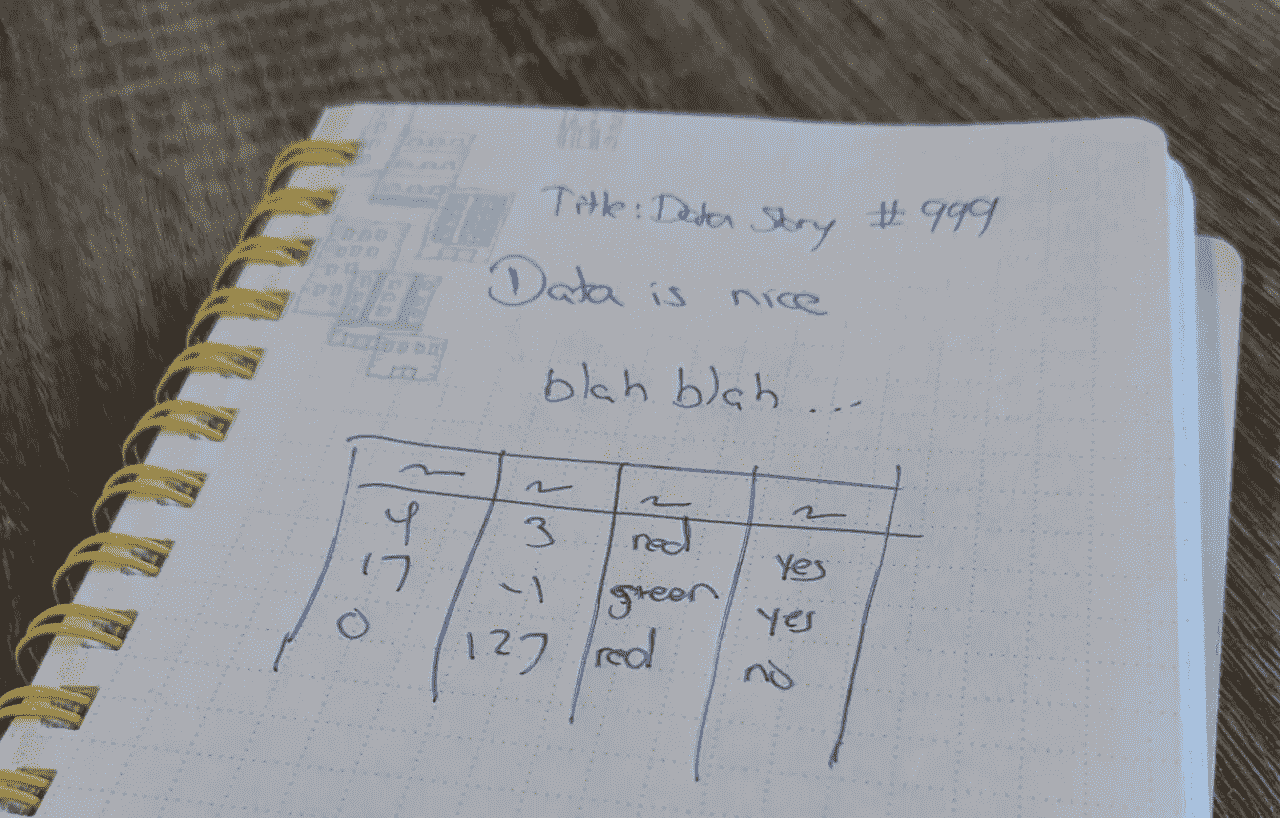 Title: Data Story # 999
Data is nice
blah blah ...
~ ~ ~ ~
4 3 red yes
17 -1 green yes
0 127 red no